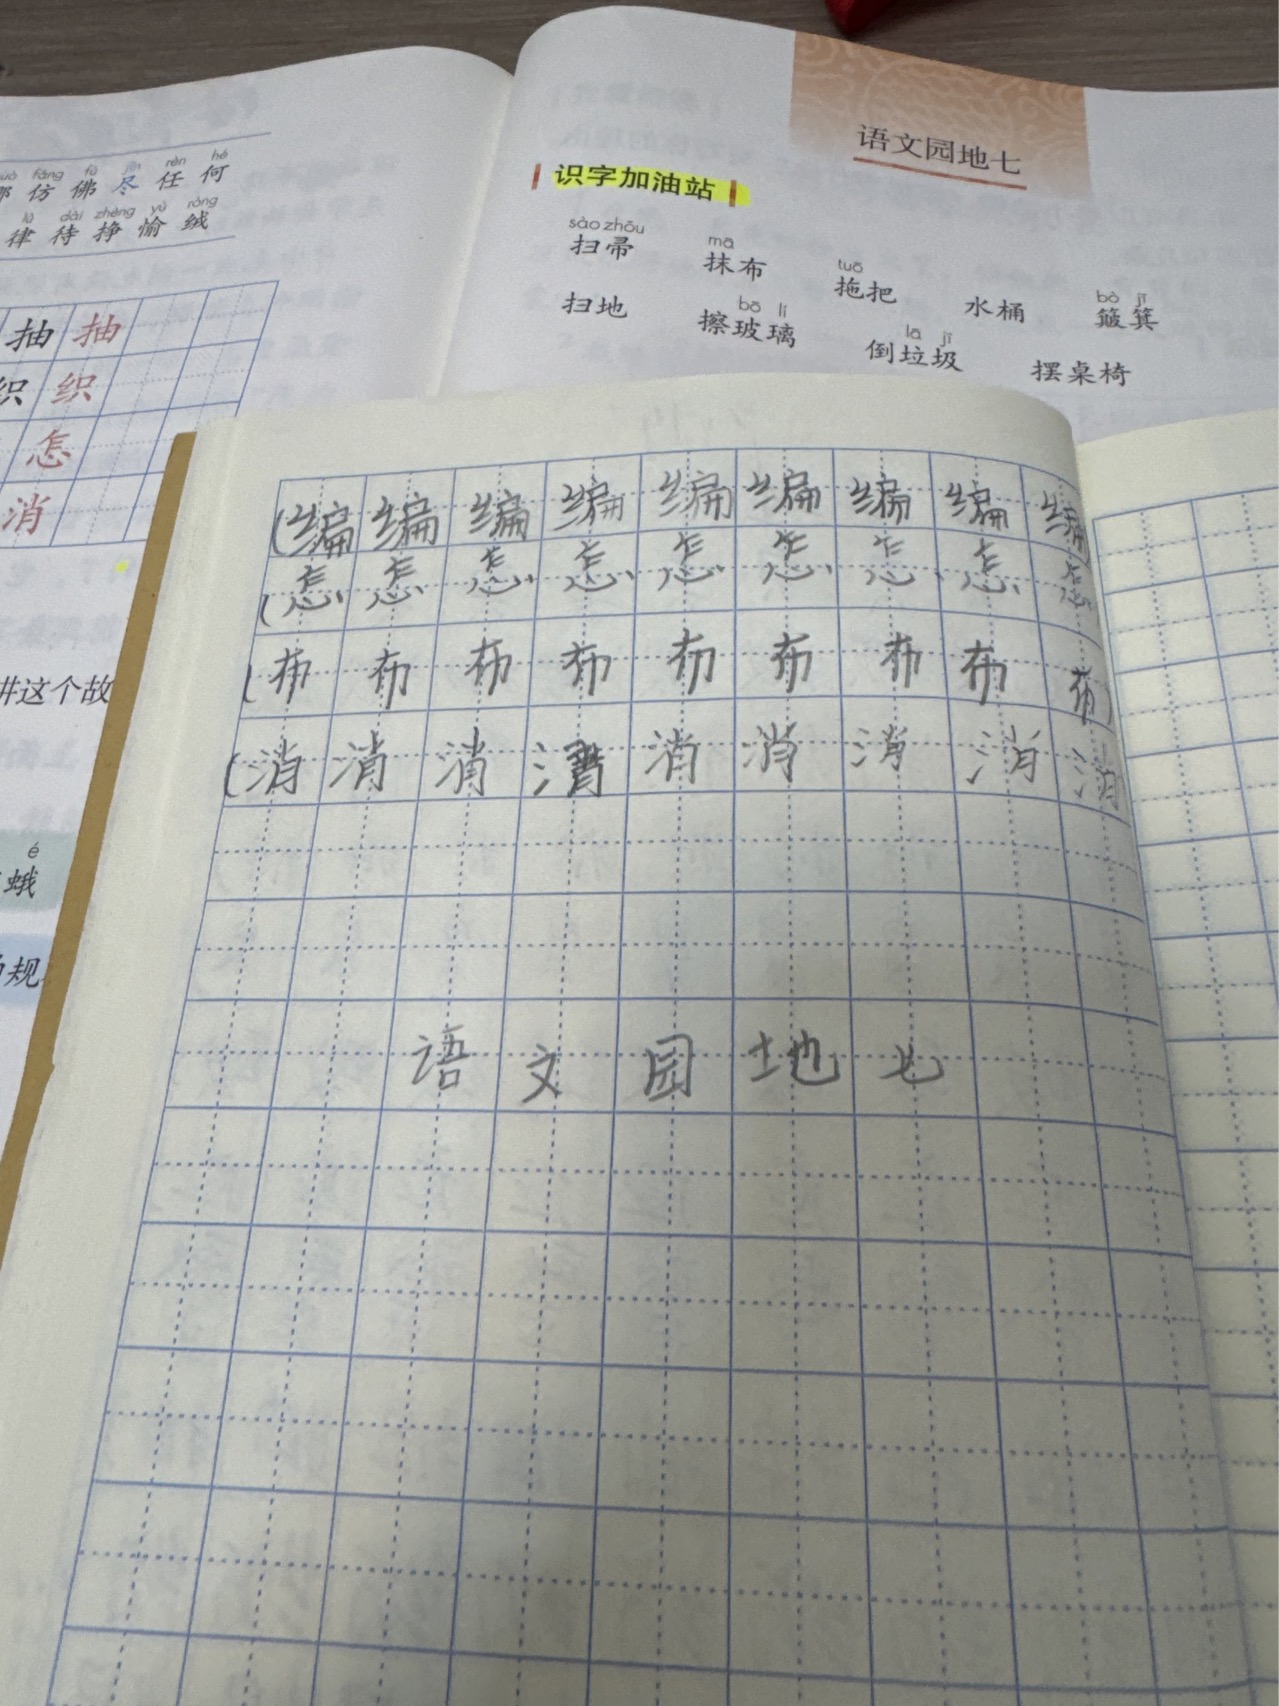 fǎng fú jìn rèn hé
仿 佛 尽 任 何
lǜ dài zhēng yú róng
律 待 挣 愉 绒
抽 抽
织 织
怎
消
讲这个故
é
蛾
规
语文园地七
识字加油站
sào zhou mā tuō bò jī
扫帚 抹布 拖把 水桶 簸箕
bō li lā jī
扫地 擦玻璃 倒垃圾 摆桌椅
(编 编 编 编 编 编 编 编 编
(怎 怎 怎 怎 怎 怎 怎 怎 怎
(布 布 布 布 布 布 布 布 布)
(消 消 消 消 消 消 消 消 消
语 文 园 地 七